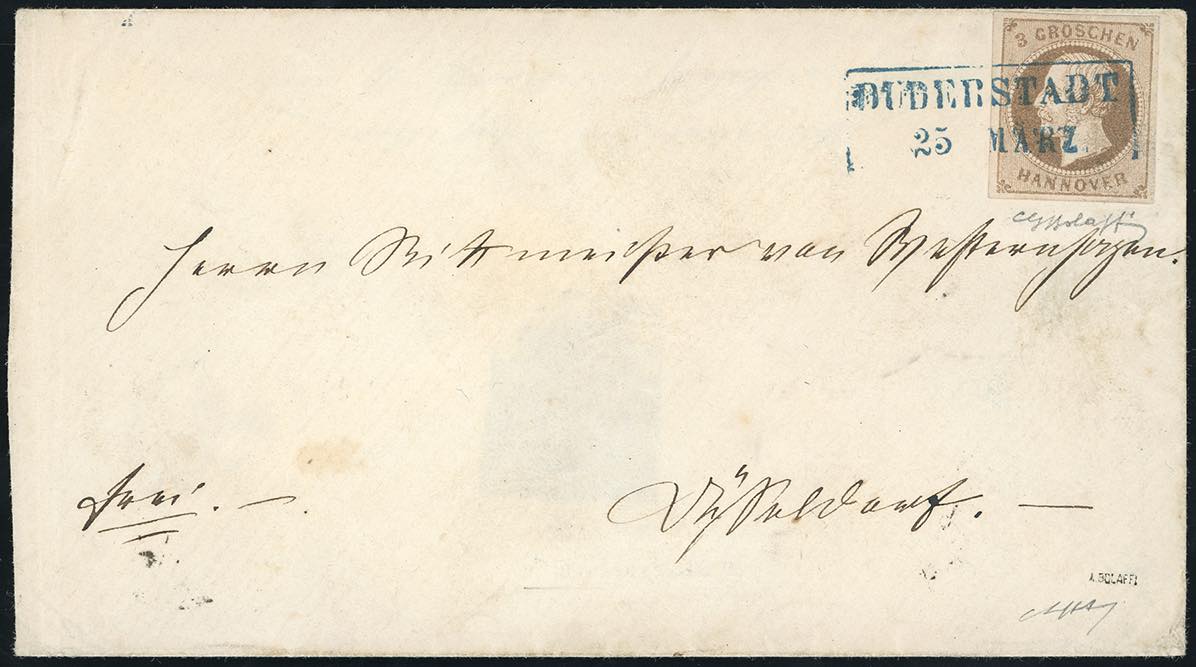 3 GROSCHEN
HANNOVER
DUDERSTADT
25 MÄRZ.
Herrn Rittmeister von Westernhagen.
frei. —
Düsseldorf. —
A. BOLAFFI